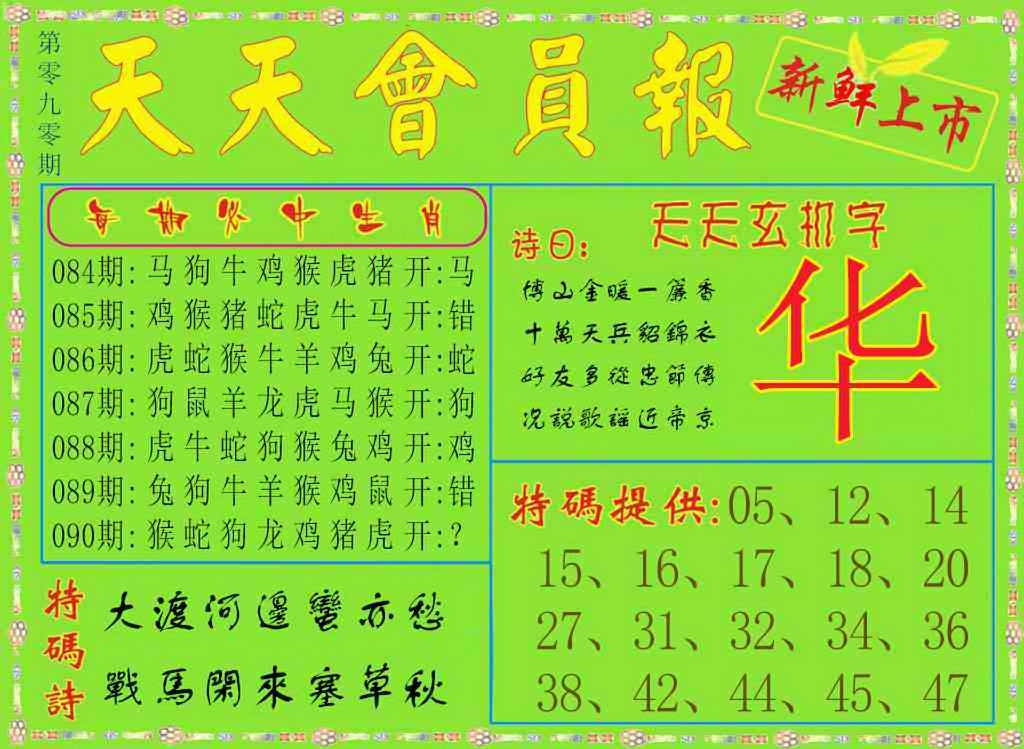 第零九零期
天天會員報
新鮮上市
每期必中生肖
084期: 马狗牛鸡猴虎猪 开:马
085期: 鸡猴猪蛇虎牛马 开:错
086期: 虎蛇猴牛羊鸡兔 开:蛇
087期: 狗鼠羊龙虎马猴 开:狗
088期: 虎牛蛇狗猴兔鸡 开:鸡
089期: 兔狗牛羊猴鸡鼠 开:错
090期: 猴蛇狗龙鸡猪虎 开:?
天天玄机字
诗曰:
博山金暖一簾香
十萬天兵貂錦衣
好友多從忠節傳
况説歌謠近帝京
华
特碼提供:05、12、14
15、16、17、18、20
27、31、32、34、36
38、42、44、45、47
特碼詩
大渡河邊蠻亦愁
戰馬閑來塞草秋